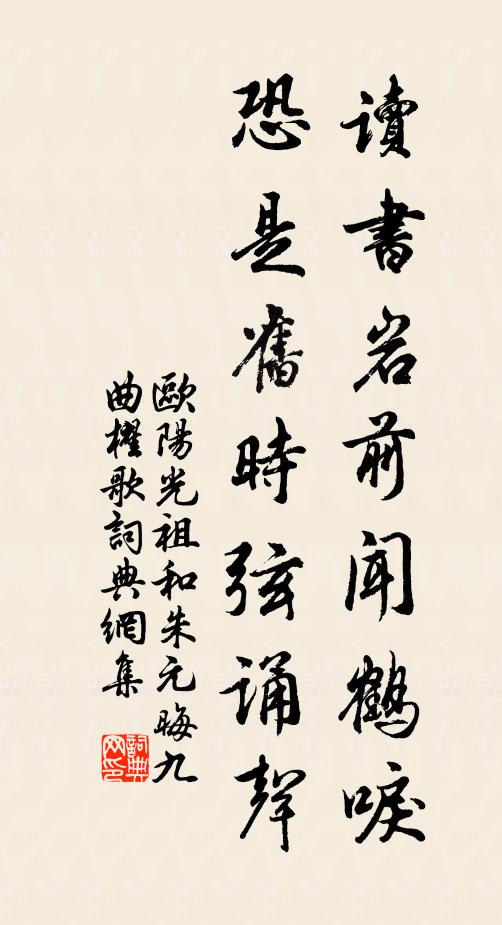 讀書岩前聞鶴唳
恐是舊時弦誦聲
歐陽光祖和朱元晦九
曲櫂歌詞典網集
詞典
网印